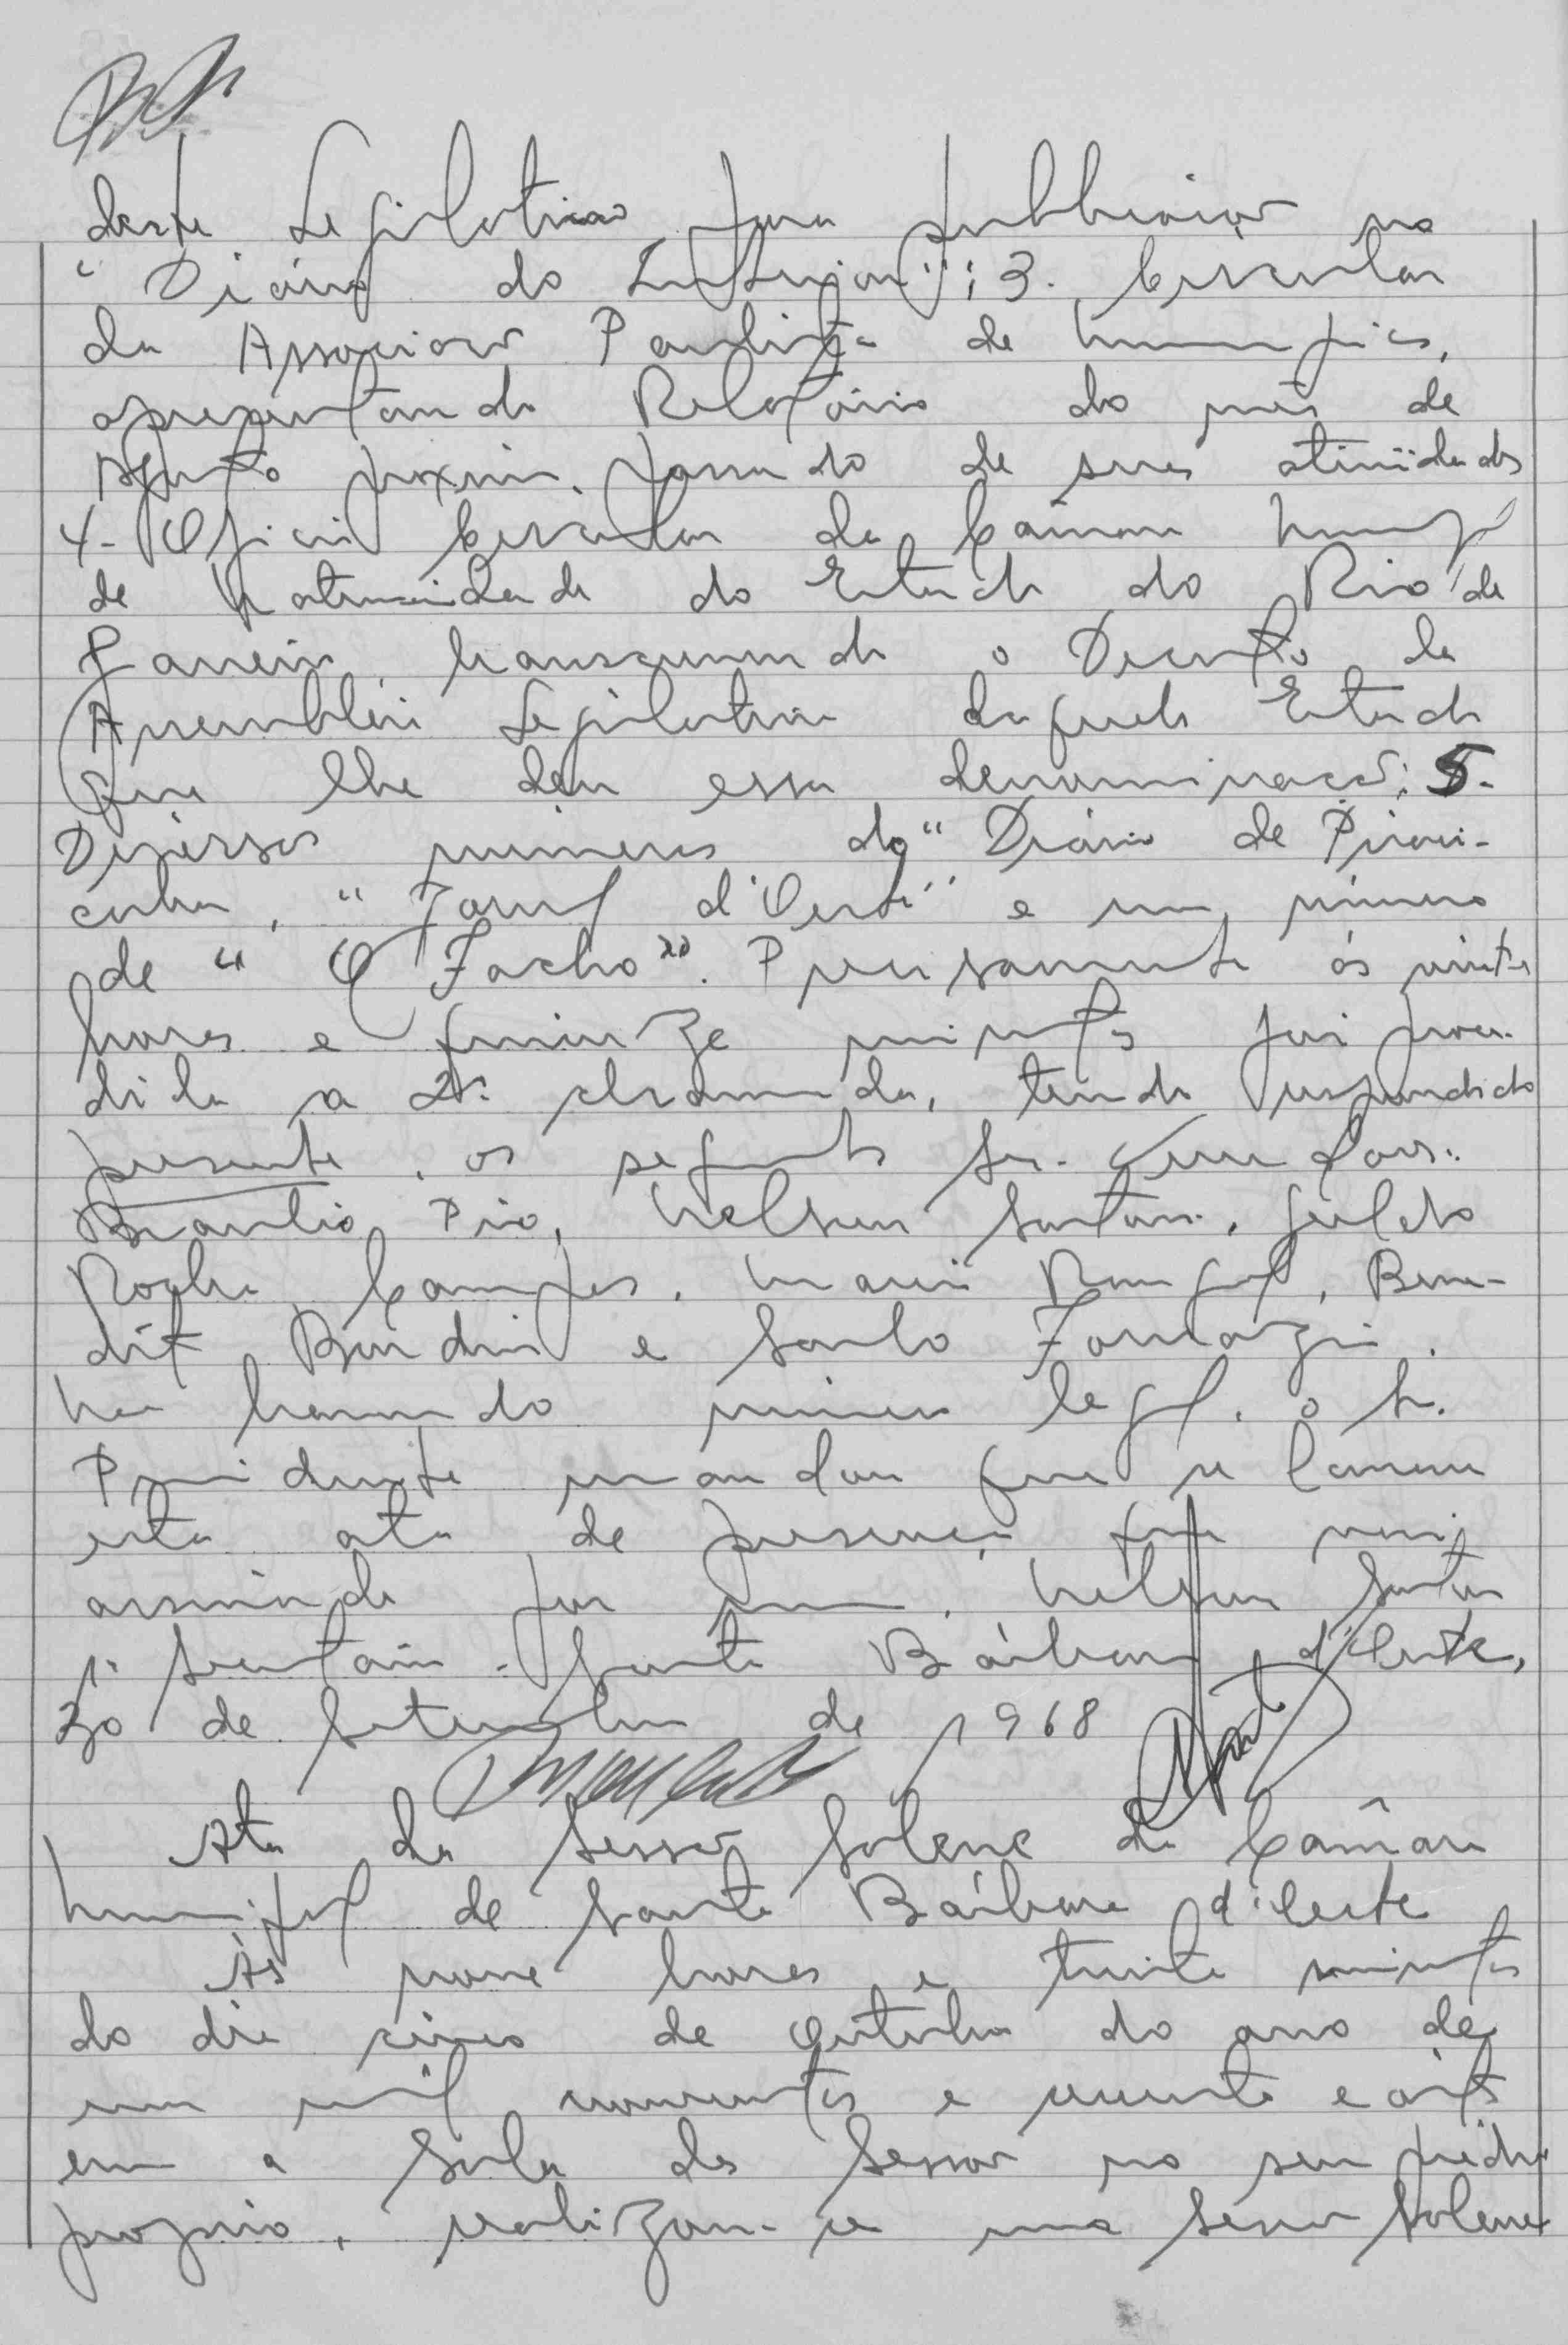 deste Legislativo para publicacao no
"Diário do Interior"; 3. Circular
da Associacao Paulista de Municipios,
apresentando Relatório do mês de
Agosto proximo passado de suas atividades
4- Oficio Circular da Câmara Municipal
de Natividade do Estado do Rio de
Janeiro, transcrevendo o Decreto da
Assembléia Legislativa daquele Estado
que lhe deu essa denominacaõ; 5-
Diversos numeros do "Diário de Piraci-
caba, "Jornal d'Oeste" e um número
de "O Facho". Precisamente ás vinte
horas e quinze minutos foi proce-
dida a 2a. chamada, tendo respondido
presente, os seguintes Srs. Vereadores:
Braulio Pio, Nelson Santana, Geraldo
Rocha Campos, Mario Rangel, Bene-
dito e Saulo Fornazin.
Não havendo número legal, o Sr.
Presidente mandou que se lavrasse
esta ata de presença que vai
assinada por mim, Nelson Santana
1º Secretário. Santa Bárbara d'Oeste,
30 de Setembro de 1968
Ata da Sessão Solene da Câmara
Municipal de Santa Bárbara d'Oeste
Às nove horas e trinta minutos
do dia cinco de Outubro do ano de
um mil novecentos e sessenta e oito
em a Sala das Sessões no seu prédio
proprio, realizou-se uma Sessão Solene